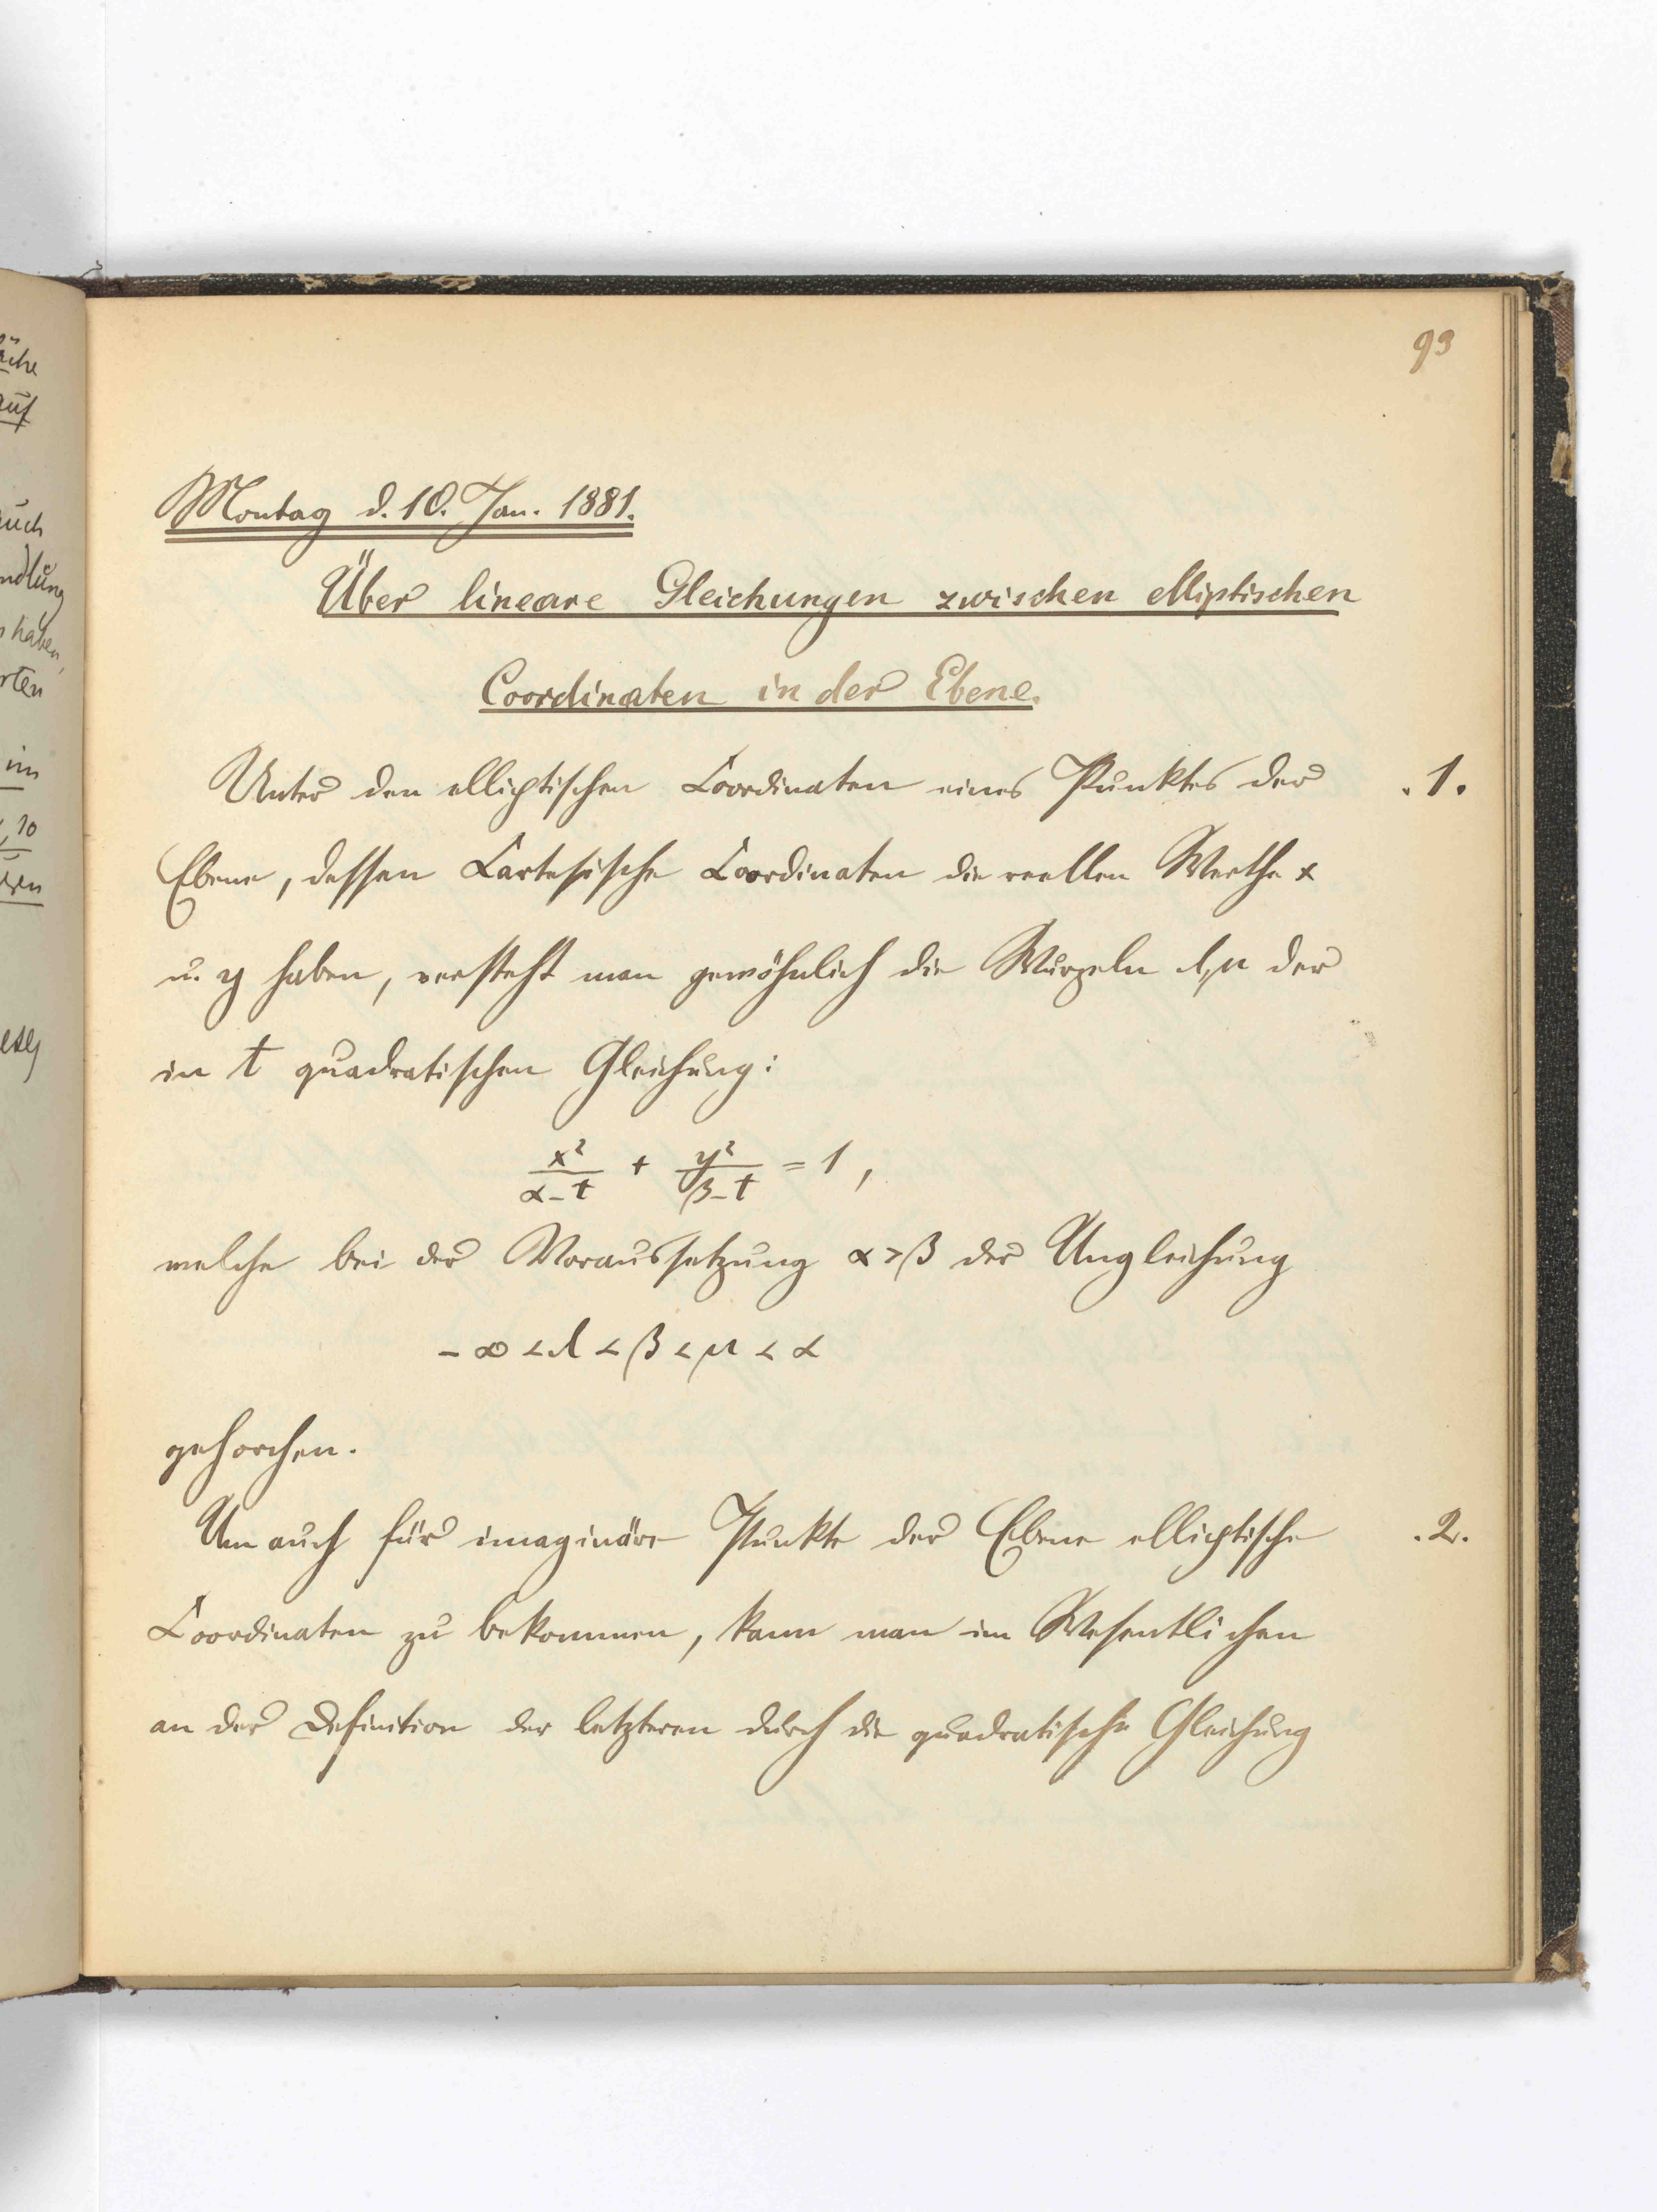 93
Montag d. 10. Jan. 1881.
Über lineare Gleichungen zwischen elliptischen
Coordinaten in der Ebene.
Unter den elliptischen Coordinaten eines Punktes der .1.
Ebene, dessen Cartesische Coordinaten die reellen Werthe x
u. y haben, versteht man gewöhnlich die Wurzeln λ, μ der
in t quadratischen Gleichung:
x²/(α-t) + y²/(β-t) = 1,
welche bei der Voraussetzung α > β der Ungleichung
- ∞ < λ < β < μ < α
gehorchen.
Um auch für imaginäre Punkte der Ebene elliptische .2.
Coordinaten zu bekommen, kann man im Wesentlichen
an der Definition der letzteren durch die quadratische Gleichung
äche
auf
auch
ndlung
haben,
rten
im
10